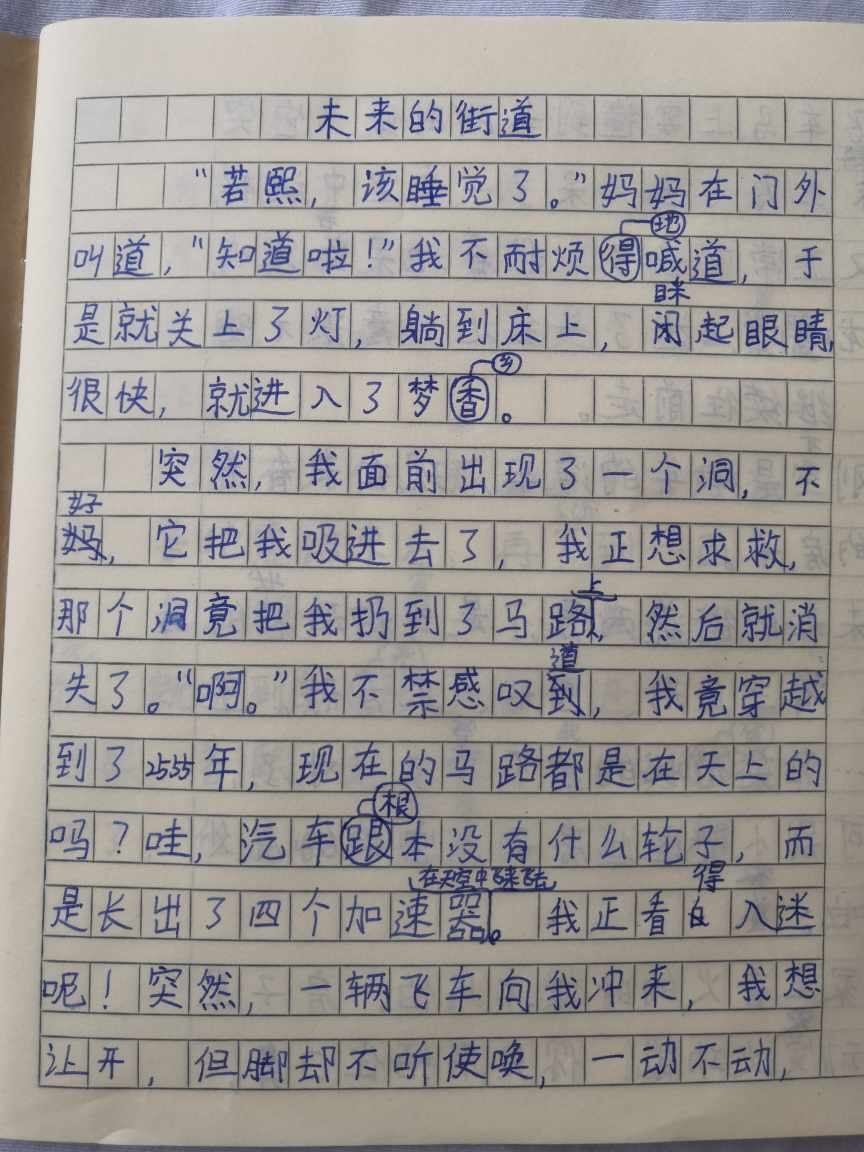 未来的街道
“若熙，该睡觉了。”妈妈在门外
地
叫道，“知道啦！”我不耐烦得喊道，于
眯
是就关上了灯，躺到床上，闭起眼睛，
乡
很快，就进入了梦香。
突然，我面前出现了一个洞，不
好
妈，它把我吸进去了，我正想求救，
上
那个洞竟把我扔到了马路，然后就消
道
失了。“啊。”我不禁感叹到，我竟穿越
到了2555年，现在的马路都是在天上的
根
吗？哇，汽车跟本没有什么轮子，而
在天空中飞来飞去 得
是长出了四个加速器。我正看的入迷
呢！突然，一辆飞车向我冲来，我想
让开，但脚却不听使唤，一动不动，